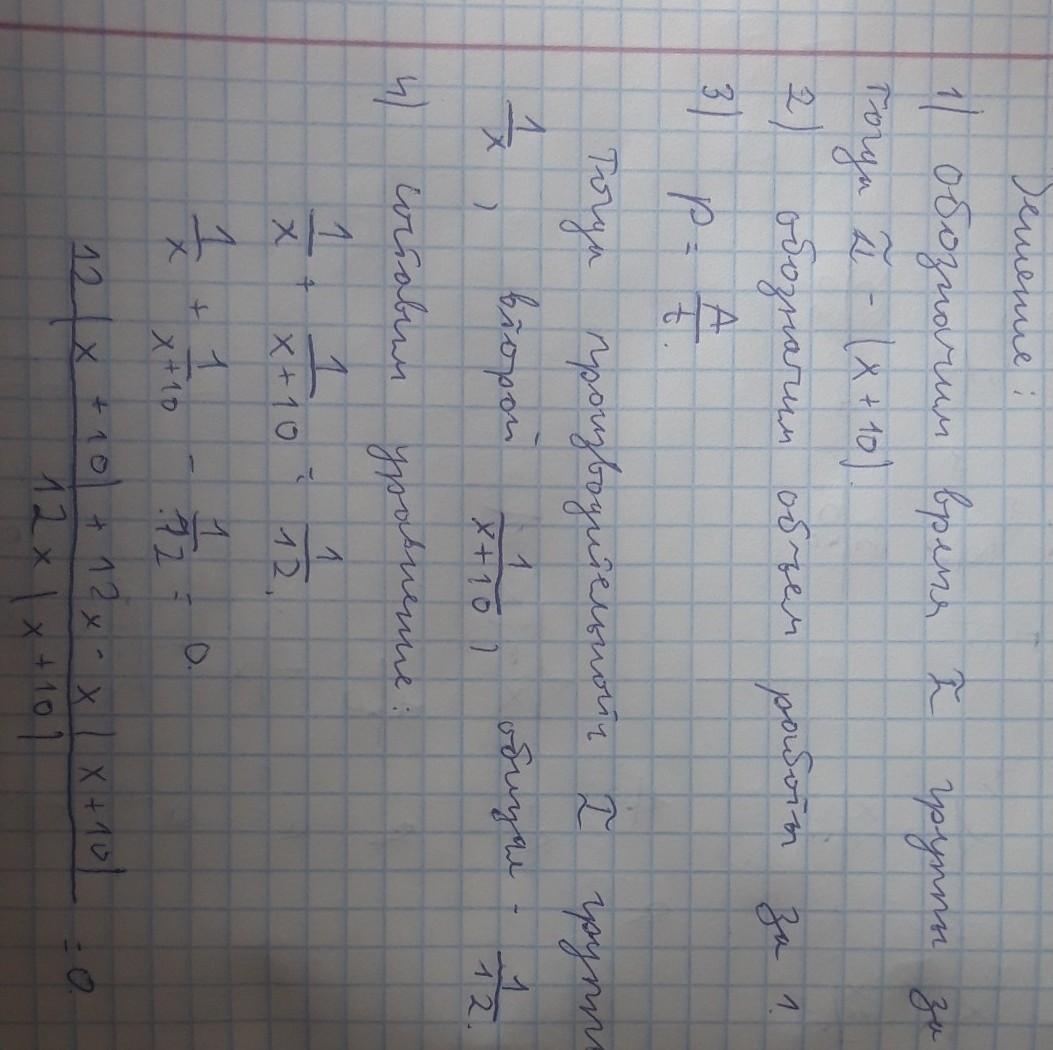 Решение:
1) Обозначим время I группы за
Тогда II - (x+10).
2) обозначим объем работы за 1.
3) P = A/t.
Тогда производительность I группы
1/x, второй 1/(x+10), общая - 1/12.
4) Составим уравнение:
1/x + 1/(x+10) = 1/12.
1/x + 1/(x+10) - 1/12 = 0.
(12(x+10) + 12x - x(x+10))/(12x(x+10)) = 0.